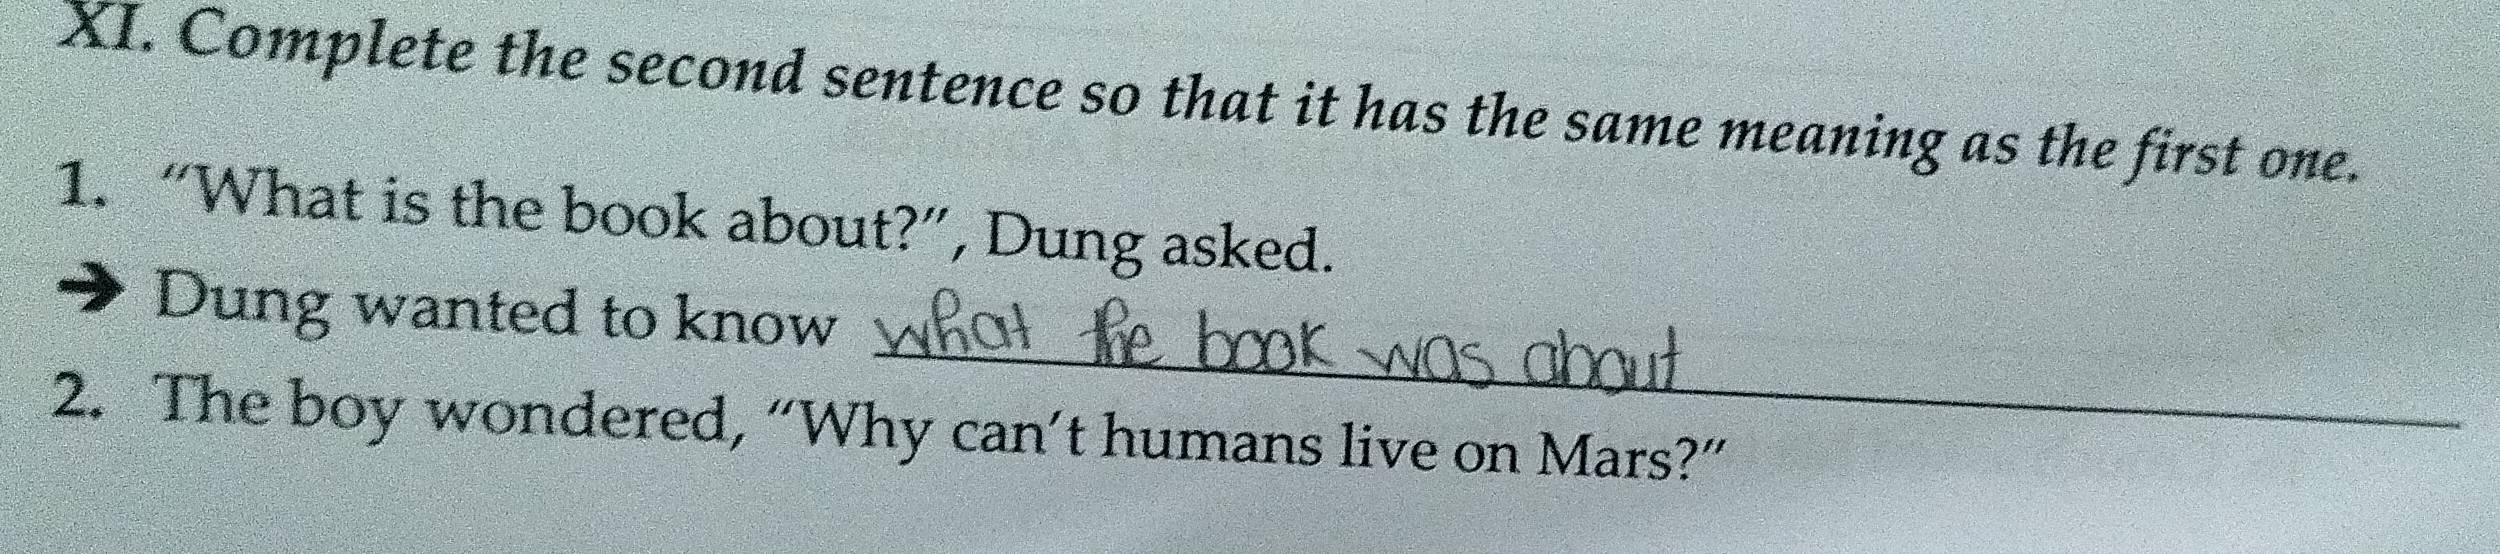 XI. Complete the second sentence so that it has the same meaning as the first one.
1. "What is the book about?", Dung asked.
➔ Dung wanted to know what the book was about
2. The boy wondered, "Why can't humans live on Mars?"